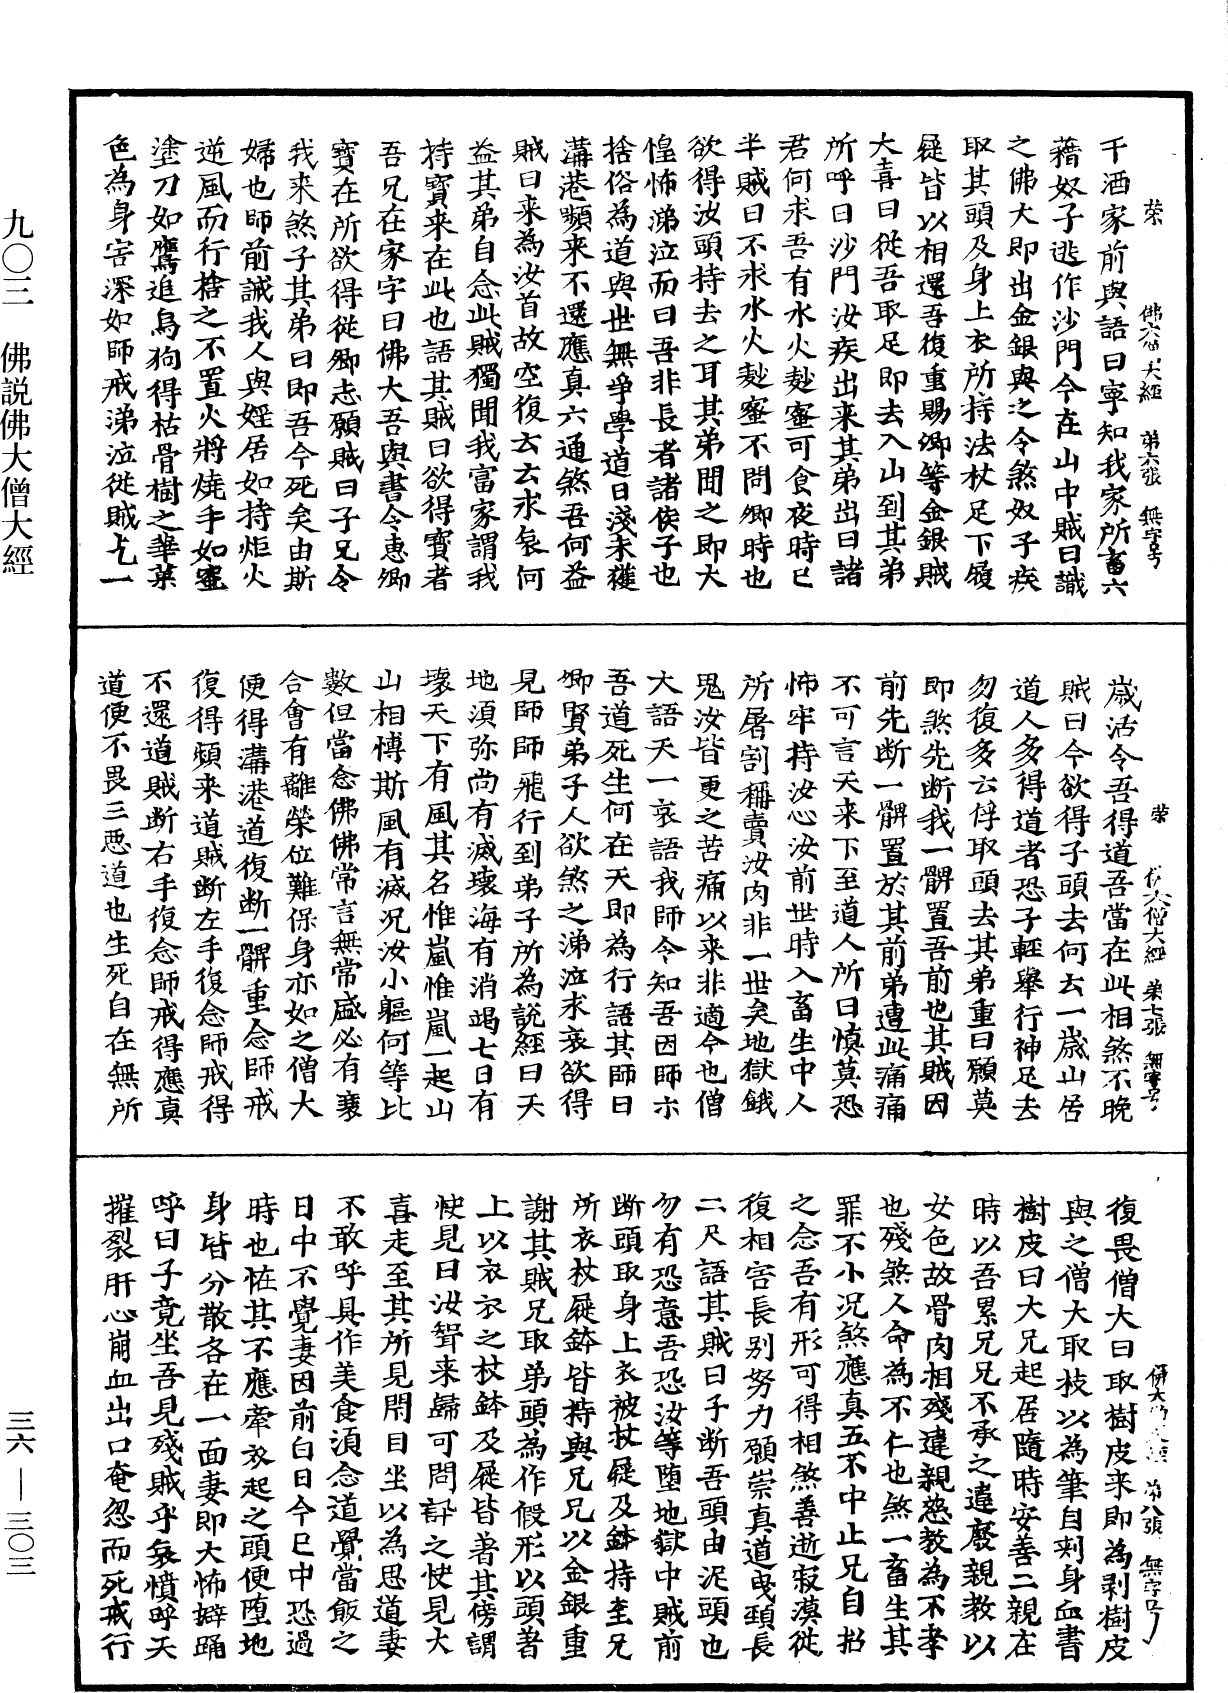 千酒家前與語曰寧知我家所畜六
藉奴子逃作沙門今在山中賊曰識
之佛大即出金銀與之令煞奴子疾
取其頭及身上衣所持法杖足下履
屣皆以相還吾復重賜卿等金銀賊
大喜曰從吾取足即去入山到其弟
所呼曰沙門汝疾出来其弟出曰諸
君何求吾有水火麨蜜可食夜時已
半賊曰不求水火麨蜜不問卿時也
欲得汝頭持去之耳其弟聞之即大
惶怖涕泣而曰吾非長者諸侯子也
捨俗為道與世無爭學道日淺未獲
溝港頻来不還應真六通煞吾何益
賊曰来為汝首故空復云云求哀何
益其弟自念此賊獨聞我富家謂我
持寶来在此也語其賊曰欲得寶者
吾兄在家字曰佛大吾與書令惠卿
寶在所欲得從卿志願賊曰子兄令
我来煞子其弟曰即吾今死矣由斯
婦也師前誡我人與婬居如持炬火
逆風而行捨之不置火將燒手如蜜
塗刀如鷹追烏狗得枯骨樹之華菓
色為身害深如師戒涕泣從賊乞一
歲活令吾得道吾當在此相煞不晚
賊曰今欲得子頭去何云一歲山居
道人多得道者恐子輕舉行神足去
勿復多云俘取頭去其弟重曰願莫
即煞先斷我一髀置吾前也其賊因
前先斷一髀置於其前弟遭此痛痛
不可言天来下至道人所曰慎莫恐
怖牢持汝心汝前世時入畜生中人
所屠割稱賣汝肉非一世矣地獄餓
鬼汝皆更之苦痛以来非適今也僧
大語天一哀語我師令知吾因師示
吾道死生何在天即為行語其師曰
卿賢弟子人欲煞之涕泣求哀欲得
見師師飛行到弟子所為說經曰天
地須弥尚有滅壞海有消竭七日有
壞天下有風其名惟嵐惟嵐一起山
山相博斯風有滅況汝小軀何等比
數但當念佛佛常言無常盛必有衰
合會有離榮位難保身亦如之僧大
便得溝港道復斷一髀重念師戒
復得頻来道賊斷左手復念師戒得
不還道賊斷右手復念師戒得應真
道便不畏三惡道也生死自在無所
復畏僧大曰取樹皮来即為剥樹皮
與之僧大取枝以為筆自刺身血書
樹皮曰大兄起居隨時安善二親在
時以吾累兄兄不承之違廢親教以
女色故骨肉相殘違親慈教為不孝
也殘煞人命為不仁也煞一畜生其
罪不小況煞應真五不中止兄自招
之念吾有形可得相煞善逝寂漠從
復相害長别努力願崇真道曳頸長
二尺語其賊曰子斷吾頭由泥頭也
勿有恐意吾恐汝等墮地獄中賊前
斷頭取身上衣被杖屣及鉢持至兄
所衣杖屣鉢皆持與兄兄以金銀重
謝其賊兄取弟頭為作假形以頭著
上以衣衣之杖鉢及屣皆著其傍謂
怏見曰汝聟来歸可問訊之怏見大
喜走至其所見閇目坐以為思道妻
不敢呼具作美食須念道覺當飯之
日中不覺妻因前白曰今已中恐過
時也怪其不應牽衣起之頭便墮地
身皆分散各在一面妻即大怖擗踊
呼曰子竟坐吾見殘賊乎哀憤呼天
摧裂肝心崩血出口奄忽而死戒行
九〇三 佛説佛大僧大經
三六—三〇三